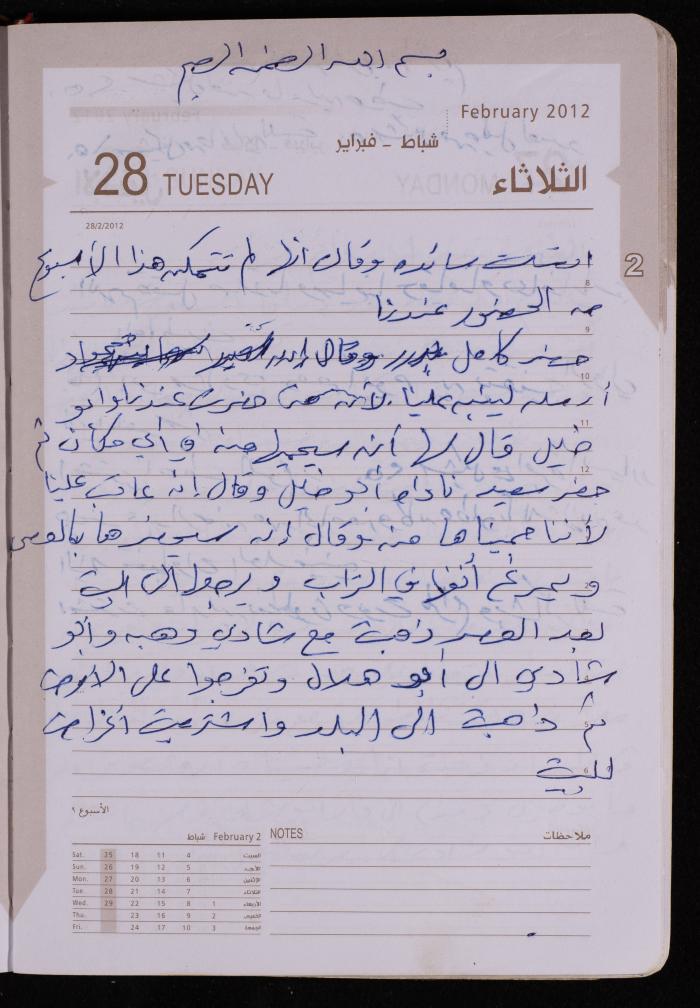 بسم الله الرحمن الرحيم
February 2012
شباط - فبراير
28 TUESDAY
الثلاثاء
28/2/2012
اتصلت سائده وقالت انها لم تتمكن هذا الأسبوع
2
8
من الحضور عندنا
9
حضر كامل وقال
10
أرسله ليشبه علينا لأنه حضرت عندنا وابو
11
خليل قال لها أنه سيحميها منه او أي مكان ثم
12
حضر سعيد ناداه ابو خليل وقال انه عاتب علينا
لأننا حميناها منه وقال انه سيحضرها بالقوس
ويمرغ أنفها في التراب ويرجعها ال البيت
بعد العصر ذهبت مع شادي وهبه وابو
شادي الى ابو هلال وتفرجوا على الارض
ثم ذهبت الى البلد واشتريت اغراض
للبيت
الأسبوع ٩
شباط February 2
Sat. 25 18 11 4 السبت
Sun. 26 19 12 5 الأحد
Mon. 27 20 13 6 الإثنين
Tue. 28 21 14 7 الثلاثاء
Wed. 29 22 15 8 1 الأربعاء
Thu. 23 16 9 2 الخميس
Fri. 24 17 10 3 الجمعة
NOTES ملاحظات